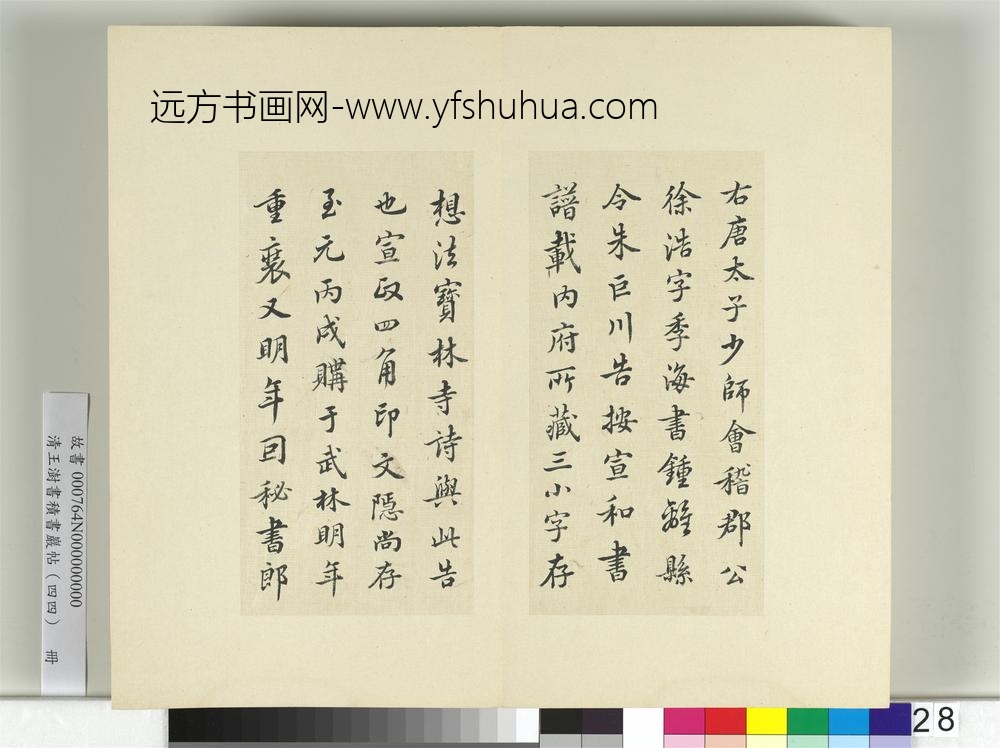 远方书画网-www.yfshuhua.com
右唐太子少師會稽郡公
徐浩字季海書鍾離縣
令朱巨川告按宣和書
譜載內府所藏三小字存
想法寶林寺詩與此告
也宣政四角印文隱尚存
至元丙戌購于武林明年
重裝又明年回秘書郎
故書 000764N000000000
清王澍書積書巖帖(四四) 冊
28